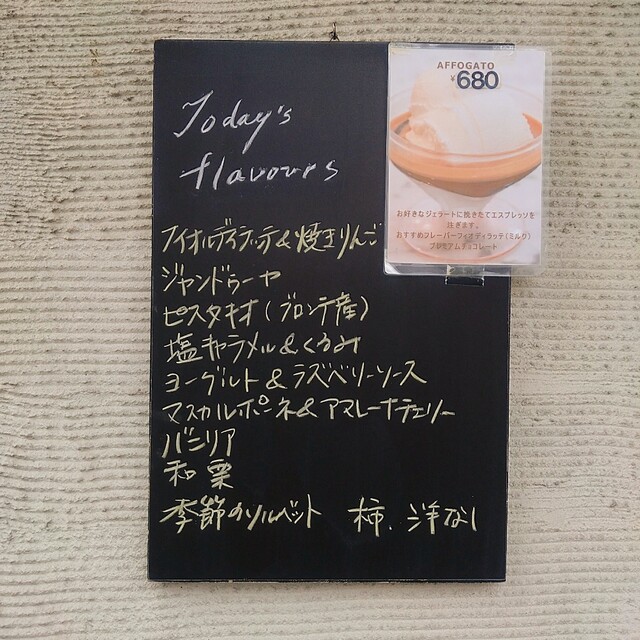 Today's
flavours
フィオルディラッテ&焼きりんご
ジャンドゥーヤ
ピスタチオ(ブロンテ産)
塩キャラメル&くるみ
ヨーグルト&ラズベリーソース
マスカルポーネ&アマレーナチェリー
バニリア
和栗
季節のソルベット 柿、洋なし
AFFOGATO
¥680
お好きなジェラートに挽きたてエスプレッソを
注ぎます。
おすすめフレーバーフィオディラッテ(ミルク)
プレミアムチョコレート